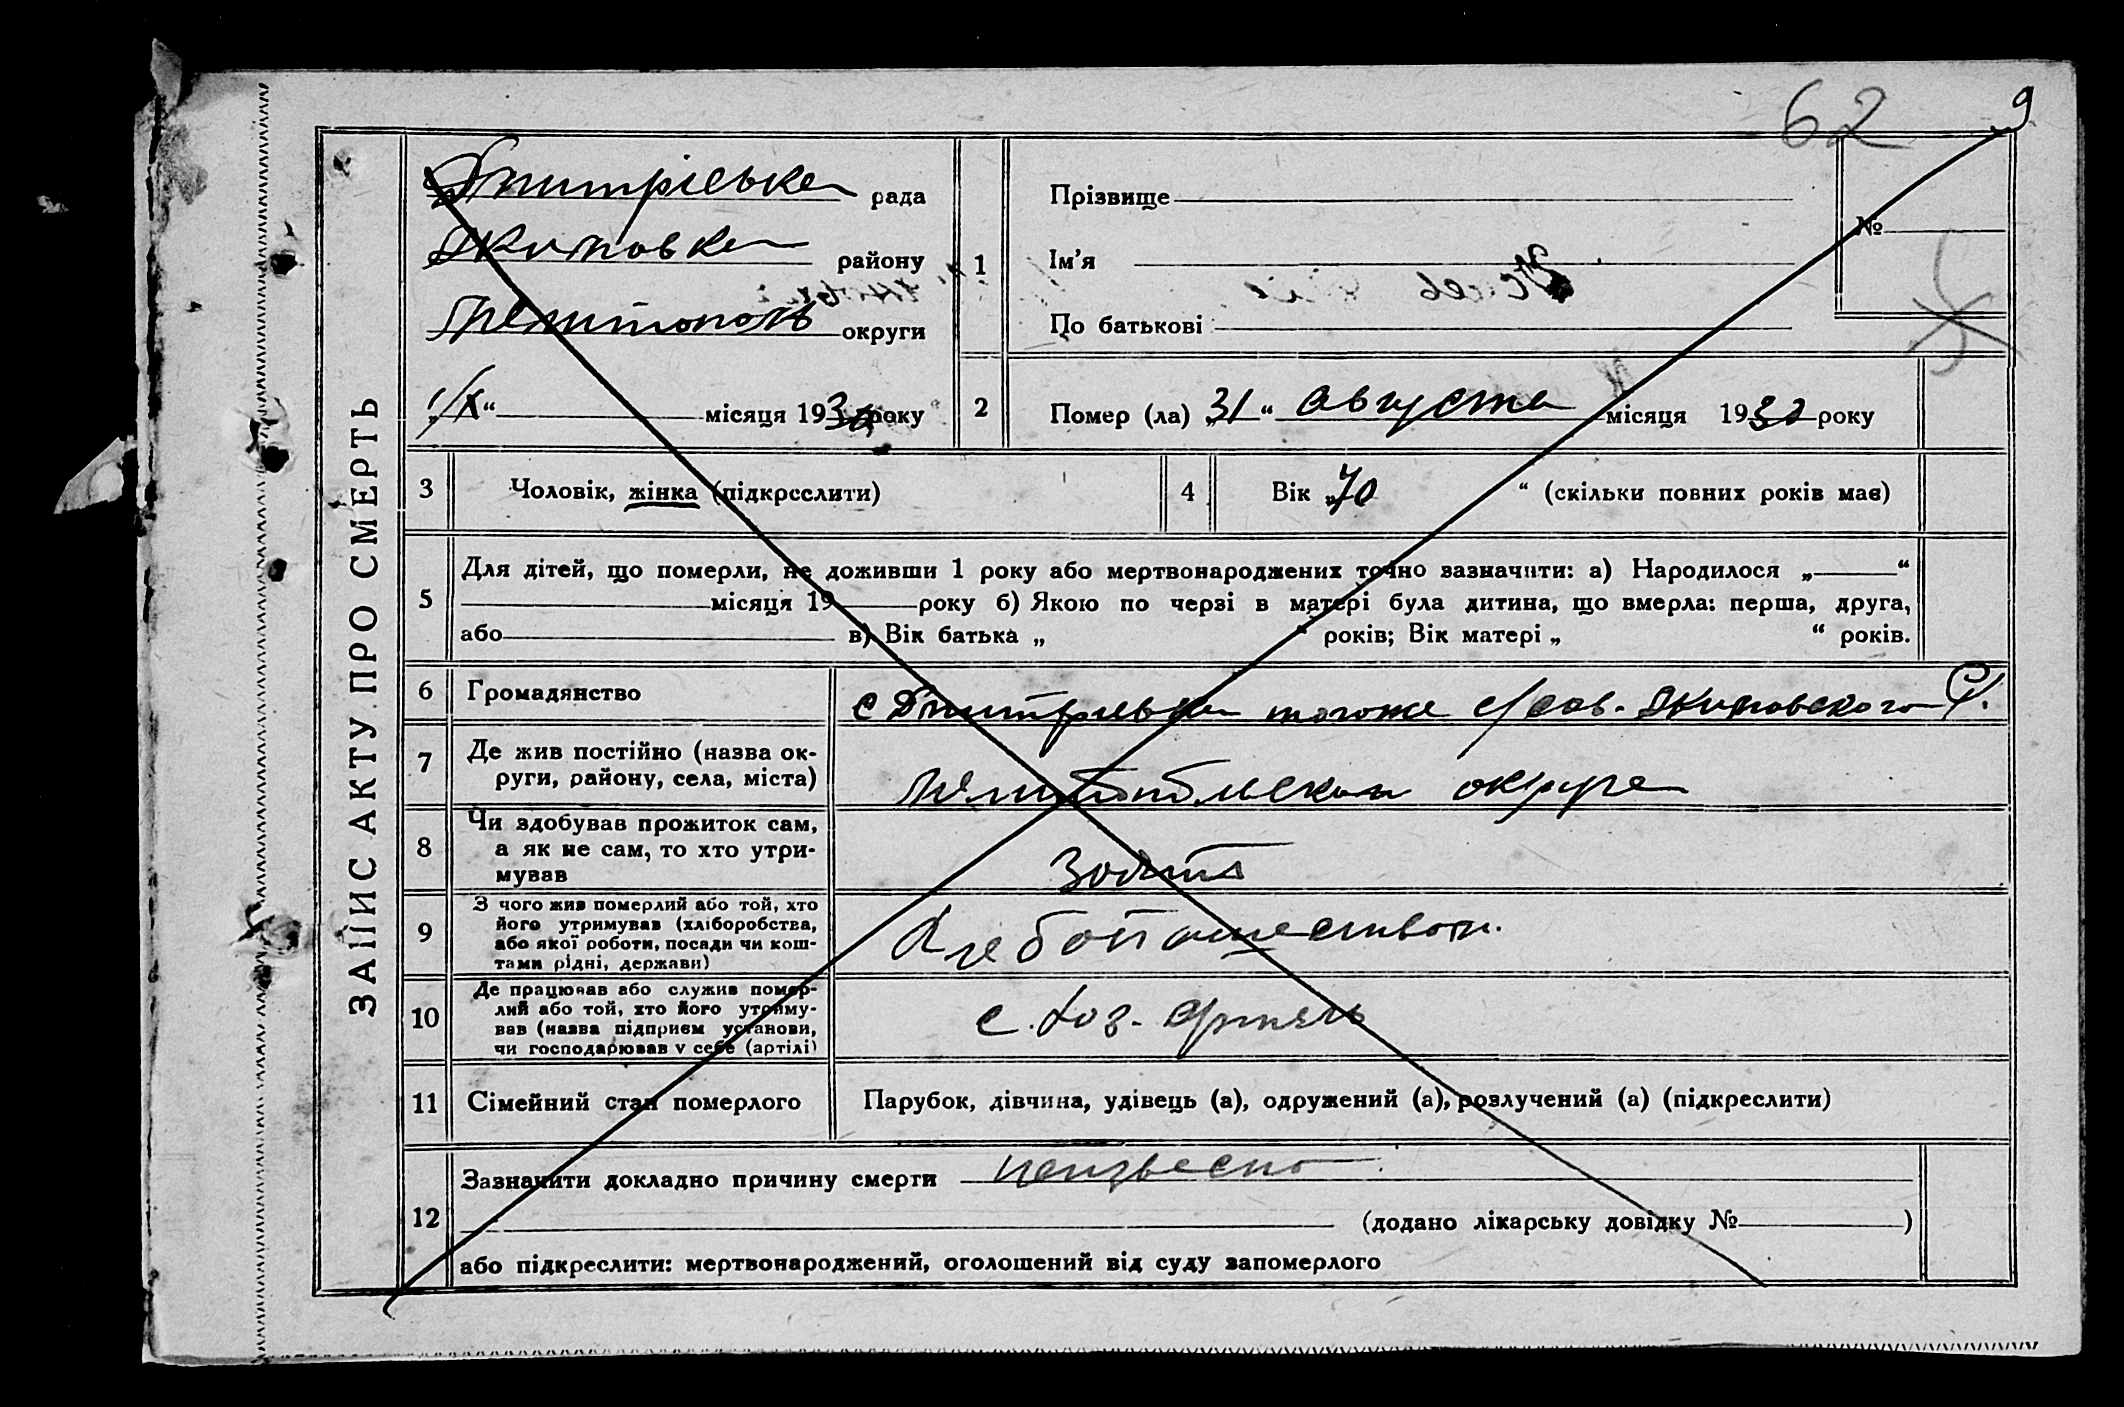 62
9
ЗАПИС АКТУ ПРО СМЕРТЬ
Дмитрієвка рада
Якимовка району
Мелитополь округи
„1/X“ місяця 1930 року
1
Прізвище
Ім’я
По батькові
№
2
Помер (ла) „31“ августа місяця 1930 року
3
Чоловік, жінка (підкреслити)
4
Вік „70 “ (скільки повних років має)
5
Для дітей, що померли, не доживши 1 року або мертвонароджених точно зазначити: а) Народилося „ “
місяця 19 року б) Якою по черзі в матері була дитина, що вмерла: перша, друга,
або в) Вік батька „ “ років; Вік матері „ “ років.
6
Громадянство
с Дмитриевка тогоже с/сов. Якимовского Р.
7
Де жив постійно (назва ок-
руги, району, села, міста)
Мелитопольской округе
8
Чи здобував прожиток сам,
а як не сам, то хто утри-
мував
9
З чого жив померлий або той, хто
його утримував (хліборобства,
або якої роботи, посади чи кош-
тами рідні, держави)
Хлебопашеством.
10
Де працював або служив помер-
лий або той, хто його утриму-
вав (назва підприєм установи,
чи господарював у себе (артілі)
с. хоз. артель
11
Сімейний стан померлого
Парубок, дівчина, удівець (а), одружений (а), розлучений (а) (підкреслити)
12
Зазначити докладно причину смерти неизвесно
(додано лікарську довідку № )
або підкреслити: мертвонароджений, оголошений від суду запомерлого